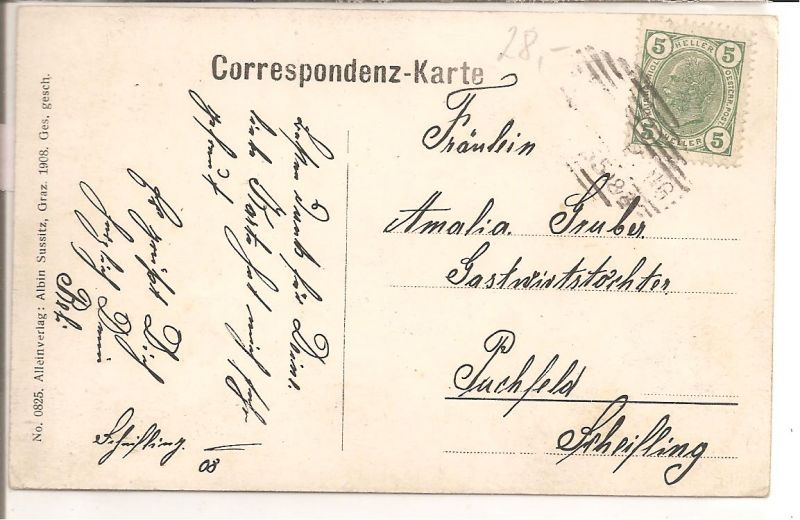 Correspondenz-Karte
28,-
5 HELLER 5
5 HELLER 5
Fräulein
Amalia Gruber
Gastwirtstochter
Puchfeld
Scheifling
Besten Dank für Deine
liebe Karte hat mich sehr
gefreut
Es grüßt Dich
herzlich Deine
Scheifling.
08
No. 0825. Alleinverlag: Albin Sussitz, Graz. 1908. Ges. gesch.